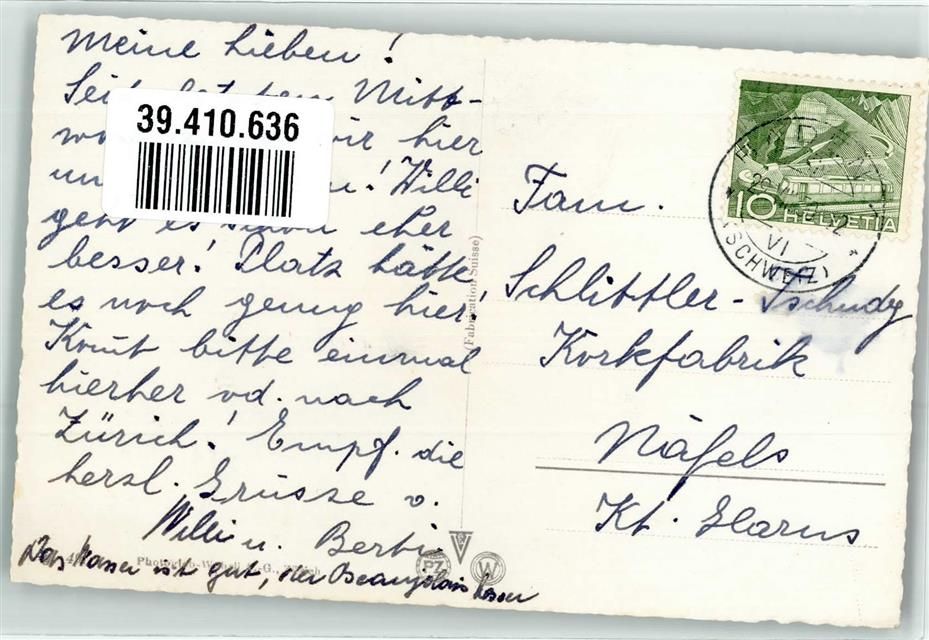 Meine Lieben!
Seit letztem Mitt-
wir hier
Willi
geht es schon eher
besser! Platz hätte
es noch genug hier!
Komt bitte einmal
hierher od. nach
Zürich! Empf. die
herzl. Grüsse v.
Willi u. Berti
Das Wasser ist gut, der Beaujolais besser
39.410.636
(Fabrication Suisse)
PZ
W
10 HELVETIA
VI
(SCHWEIZ)
Fam.
Schlittler-Tschudy
Korkfabrik
Näfels
Kt. Glarus